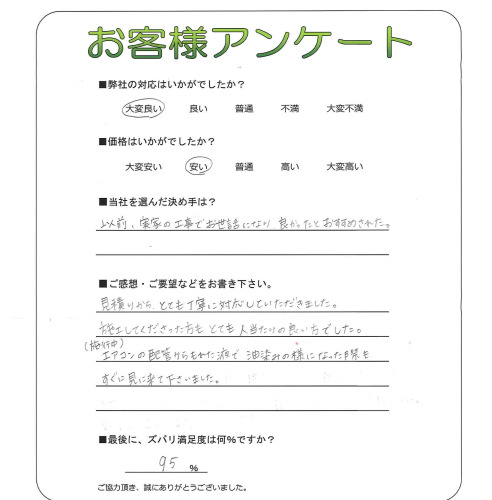 お客様アンケート
■弊社の対応はいかがでしたか?
大変良い 良い 普通 不満 大変不満
■価格はいかがでしたか?
大変安い 安い 普通 高い 大変高い
■当社を選んだ決め手は?
以前、実家の工事でお世話になり 良かったとおすすめされた。
■ご感想・ご要望などをお書き下さい。
見積りから とても丁寧に対応していただきました。
施工してくださった方も とても人当たりの良い方でした。
(施行中)
エアコンの配管からもれた液で 油染みの様になった際も
すぐに見に来て下さいました。
■最後に、ズバリ満足度は何%ですか?
95 %
ご協力頂き、誠にありがとうございました。